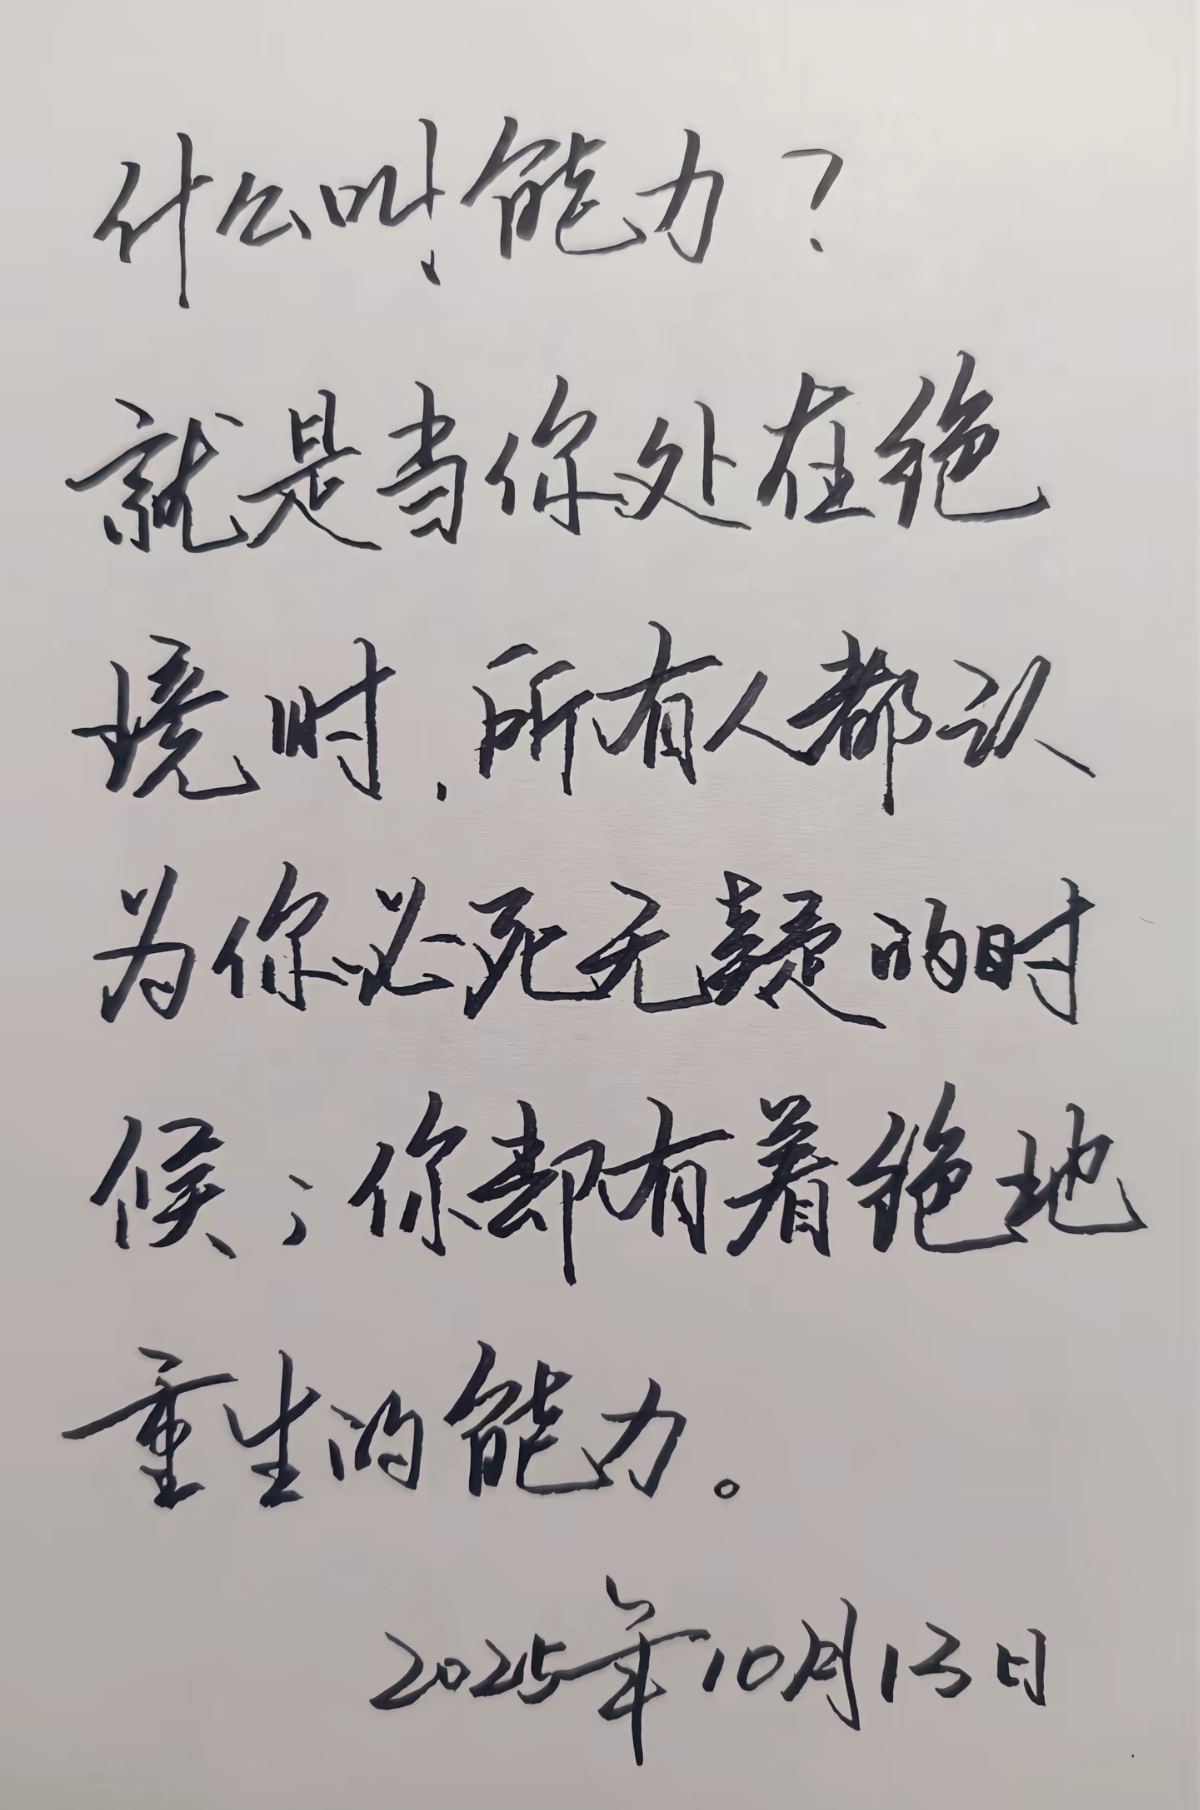 什么叫能力？
就是当你处在绝
境时.所有人都认
为你必死无疑的时
候；你却有着绝地
重生的能力。
2025年10月13日